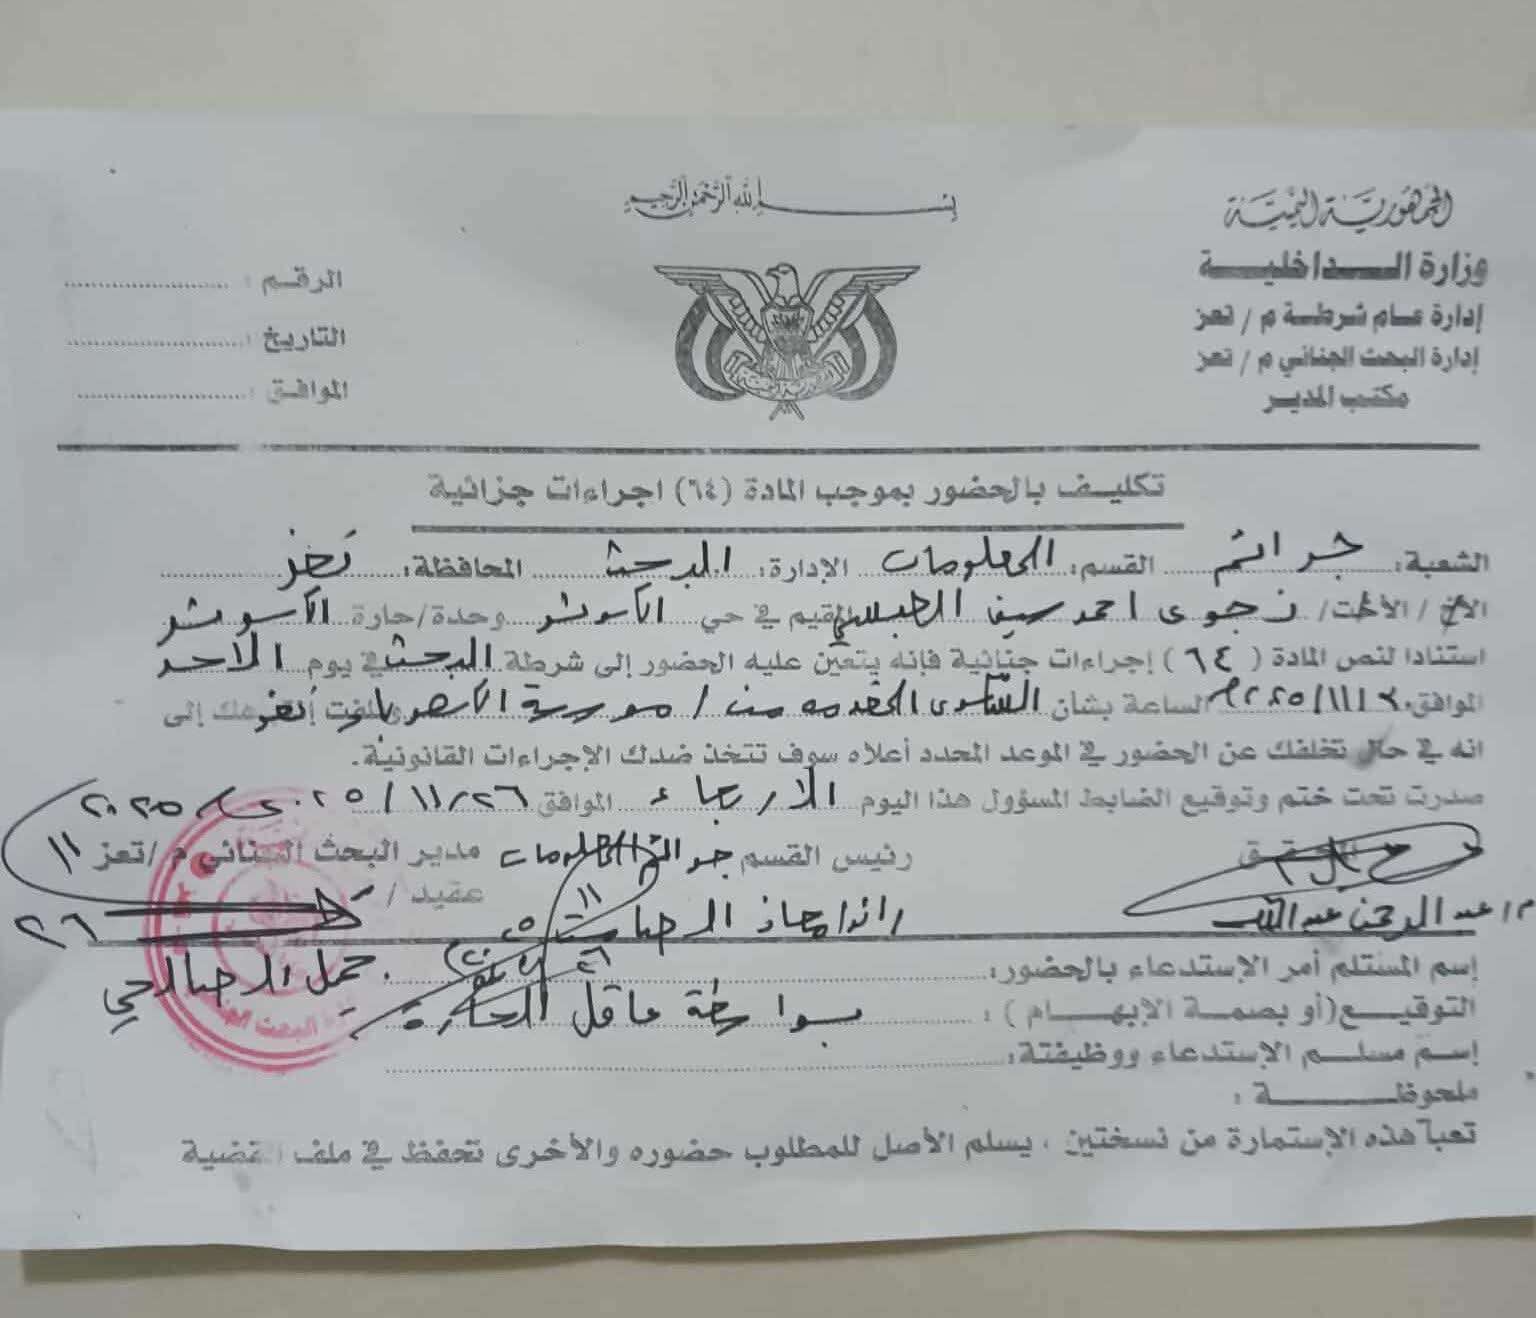 بسم الله الرحمن الرحيم
الجمهورية اليمنية
وزارة الداخلية
إدارة عام شرطة م / تعز
إدارة البحث الجنائي م / تعز
مكتب المدير
الرقم :
التاريخ :
الموافق :
تكليف بالحضور بموجب المادة (٦٤) اجراءات جزائية
الشعبة: جرائم القسم: المعلومات الإدارة: البحث المحافظة: تعز
الأخ / الأخت/ نجوى احمد سيف المقيم في حي الكوثر وحدة/حارة الكوثر
استنادا لنص المادة ( ٦٤ ) إجراءات جنائية فإنه يتعين عليه الحضور إلى شرطة البحث في يوم الاحد
الموافق ٢٠٢٥/١١/٣٠م الساعة بشأن الشكوى المقدمه من / مدرسة ونلفت إلى
انه في حال تخلفك عن الحضور في الموعد المحدد أعلاه سوف تتخذ ضدك الإجراءات القانونية.
صدرت تحت ختم وتوقيع الضابط المسؤول هذا اليوم الاربعاء الموافق ٢٠٢٥/١١/٢٦
المحقق رئيس القسم جرائم المعلومات مدير البحث الجنائي م /تعز
عقيد /
م/ عبد الرحمن عبد الملك
إسم المستلم أمر الإستدعاء بالحضور:
التوقيع(أو بصمة الإبهام ) : بواسطة عاقل الحارة
إسم مسلم الإستدعاء ووظيفتة:
ملحوظة :
تعبأ هذه الإستمارة من نسختين ، يسلم الأصل للمطلوب حضوره والأخرى تحفظ في ملف القضية